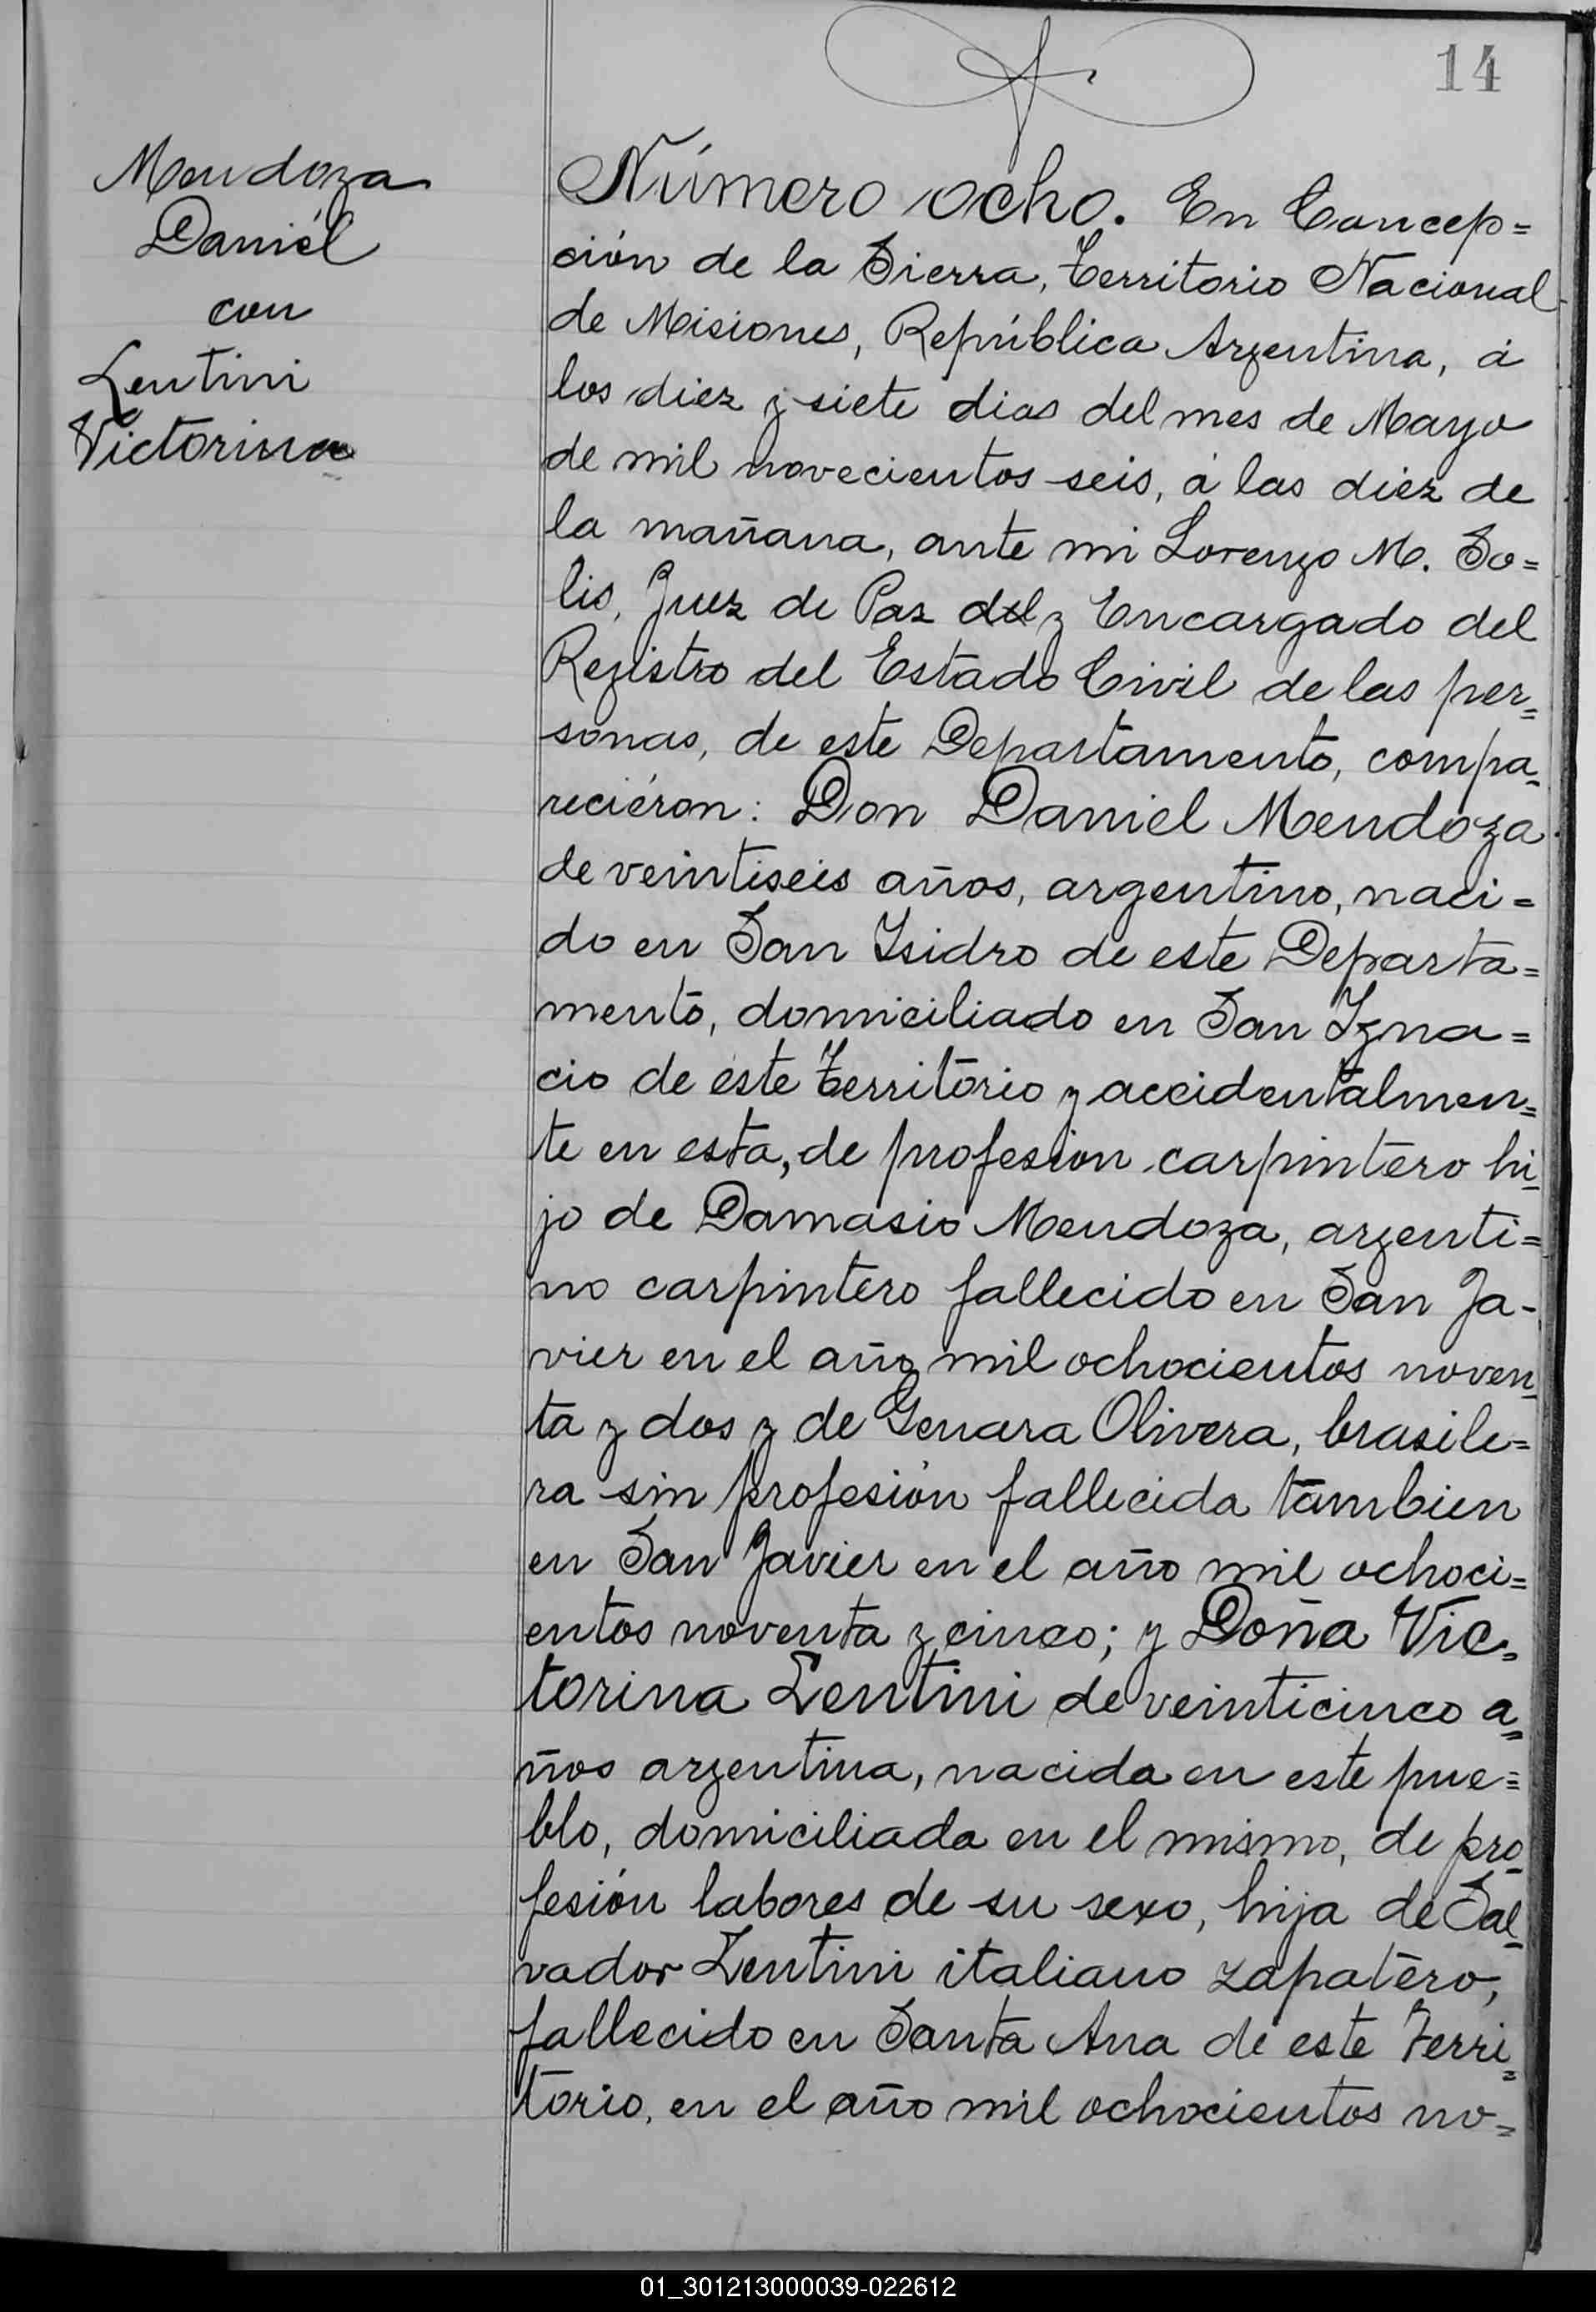 14
Mendoza
Daniél
con
Lentini
Victorina
Número ocho. En Concep=
ción de la Sierra, Territorio Nacional
de Misiones, República Argentina, á
los diez y siete dias del mes de Mayo
de mil novecientos seis, á las diez de
la mañana, ante mi Lorenzo M. So=
lis, Juez de Paz del y Encargado del
Registro del Estado Civil de las per=
sonas, de este Departamento, compa=
reciéron: Don Daniel Mendoza
de veintiseis años, argentino, naci=
do en San Isidro de este Departa=
mento, domiciliado en San Igna=
cio de este Territorio y accidentalmen=
te en esta, de profesion carpintero hi=
jo de Damasio Mendoza, argenti=
no carpintero fallecido en San Ja-
vier en el año mil ochocientos noven=
ta y dos y de Genara Olivera, brasile=
ra sin profesión fallecida tambien
en San Javier en el año mil ochoci=
entos noventa y cinco; y Doña Vic=
torina Lentini de veinticinco a=
ños argentina, nacida en este pue=
blo, domiciliada en el mismo, de pro=
fesión labores de su sexo, hija de Sal=
vador Lentini italiano zapatero,
fallecido en Santa Ana de este Terri=
torio, en el año mil ochocientos no=
01_301213000039-022612